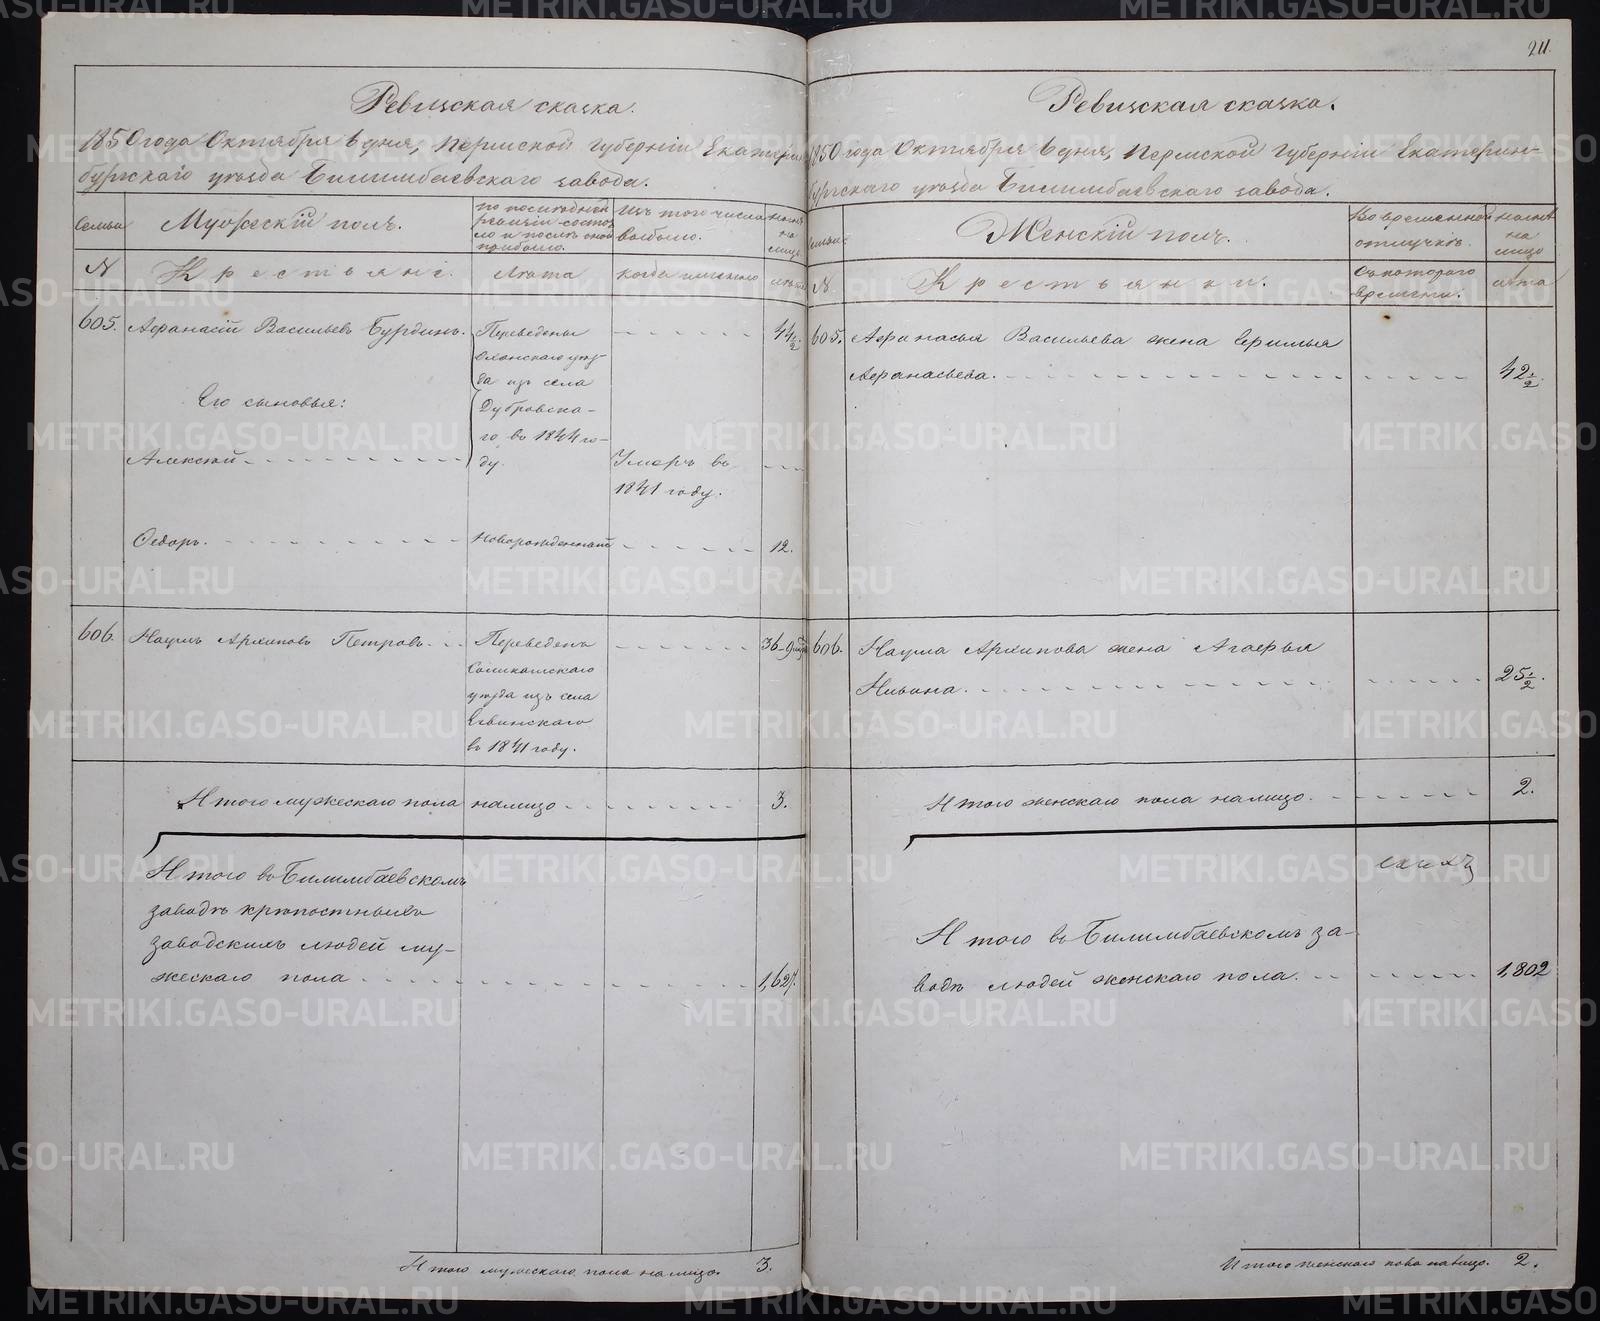 211.
Ревизская сказка.
1850 года Октября 6 дня, Пермской губернiи Екатерин
бургскаго уѣзда Билимбаевскаго завода.
Семьи
Мужескiй полъ.
по последней
ревизiи состоя
ло и послѣ оной
прибыло.
Изъ того числа
выбыло.
нынѣ
на
лицо
№
Крестьяне.
Лѣта
когда именно
лѣта
605.
Афанасiй Васильевъ Бурдинъ.
Переведены
Оханскаго уѣз-
да изъ села
Дубровска-
го, въ 1844 го-
ду.
44½
Его сыновья:
Алексѣй
Умеръ въ
1841 году.
Ѳедоръ.
Новорожденный
12.
606.
Наумъ Архиповъ Петровъ
Переведенъ
Соликамскаго
уѣзда изъ села
Егвинскаго
въ 1841 году.
36-9
Итого мужескаго пола налицо
3.
Итого въ Билимбаевскомъ
заводѣ крѣпостныхъ
заводскихъ людей му-
жескаго пола
1,627.
Итого мужескаго пола налицо.
3.
Ревизская сказка.
1850 года Октября 6 дня, Пермской губернiи Екатерин-
бургскаго уѣзда Билимбаевскаго завода.
Семьи.
Женскiй полъ.
Во временной
отлучкѣ.
налицо
№
Крестьянки.
Съ котораго
времени.
лѣта
605.
Афанасья Васильева жена Ефимья
Афанасьева.
42½.
606.
Наума Архипова жена Агафья
Ильина.
25½.
Итого женскаго пола налицо.
2.
Итого въ Билимбаевскомъ за-
водѣ людей женскаго пола.
1,802
Итого женскаго пола налицо.
2.
METRIKI.GASO-URAL.RU